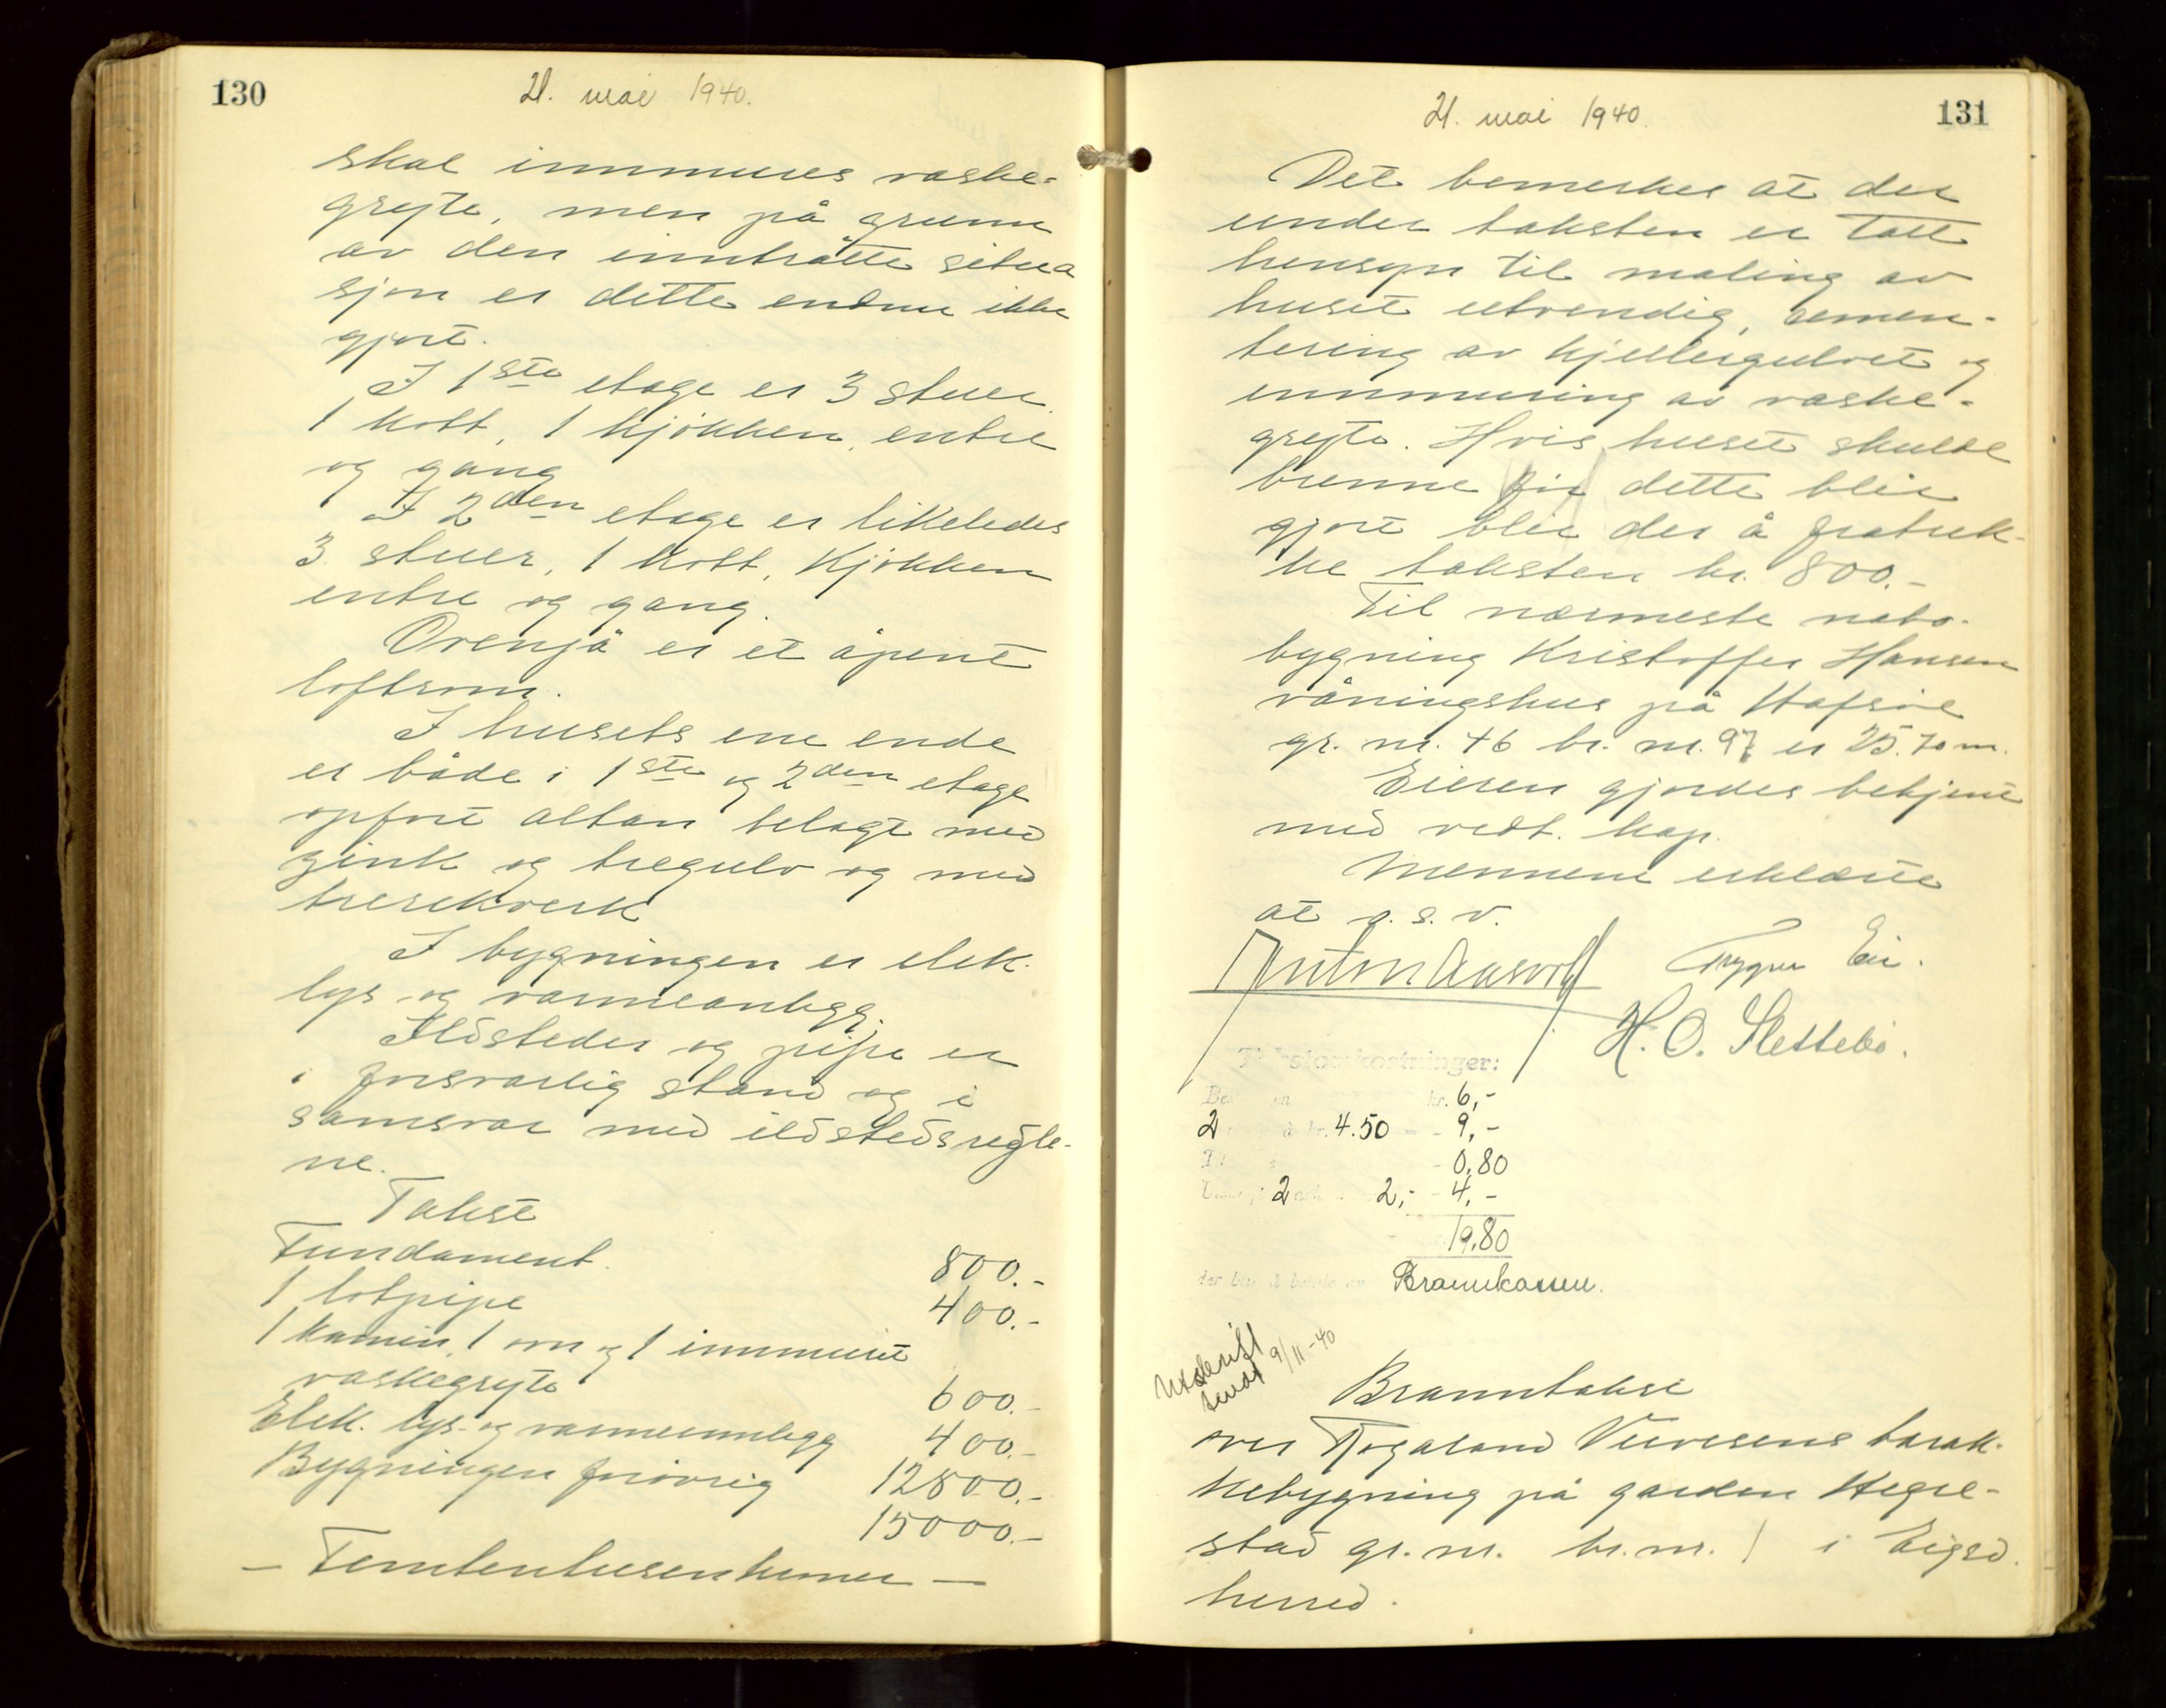 130
21. mai 1940.
skal innmures vaske-
gryte, men på grunn
av den inntråtte situa
sjon er dette endnu ikke
gjort.
I 1ste etage er 3 stuer
1 kott, 1 kjøkken, entre
og gang
I 2den etage er likeledes
3 stuer, 1 kott, kjøkken
entre og gang.
Ovenpå er et åpent
loftsrom.
I husets ene ende
er både i 1ste og 2den etage
opført altan belagt med
zink og tregulv og med
trerekverk
I bygningen er elek.
lys og varmeanlegg.
Ildsteder og pipe er
i forsvarlig stand og i
samsvar med ildstedsregle-
ne.
Takst
Fundament. 800.-
1 lotpipe 400.-
1 kamin, 1 ovn og 1 innmuret
vaskegryte 600.-
Elek. lys- og varmeinnlegg 400.-
Bygningen forøvrig 12800.-
15000.-
— Femtentusenkroner —
131
21. mai 1940.
Det bemerkes at der
under taksten er tatt
hensyn til maling av
huset utvendig, semen-
tering av kjellergulvet og
innmuring av vaske-
gryte. Hvis huset skulde
brenne før dette blir
gjort blir der å fratrek-
ke taksten kr. 800.-
Til nærmeste nabo-
bygning Kristoffer Hansen
våningshus på Hafsøe
gr. nr. 46 br. nr. 97 er 25.70 m.
Eieren gjordes bekjent
med vedt. kap.
Mennene erklærte
at o.s.v.
Trygve Eie.
H. O. Slettebø.
Takstomkostninger:
kr. 6,-
2 à kr. 4.50 - 9,-
- 0,80
2 2,- - 4,-
19,80
der blir å betale av Brannkassen.
Utskrift
sendt 9/11-40
Branntakst
over Rogaland Veivesens barak-
kebygning på garden Hegre-
stad gr. nr. br. nr. 1 i Eigsd.
herred.